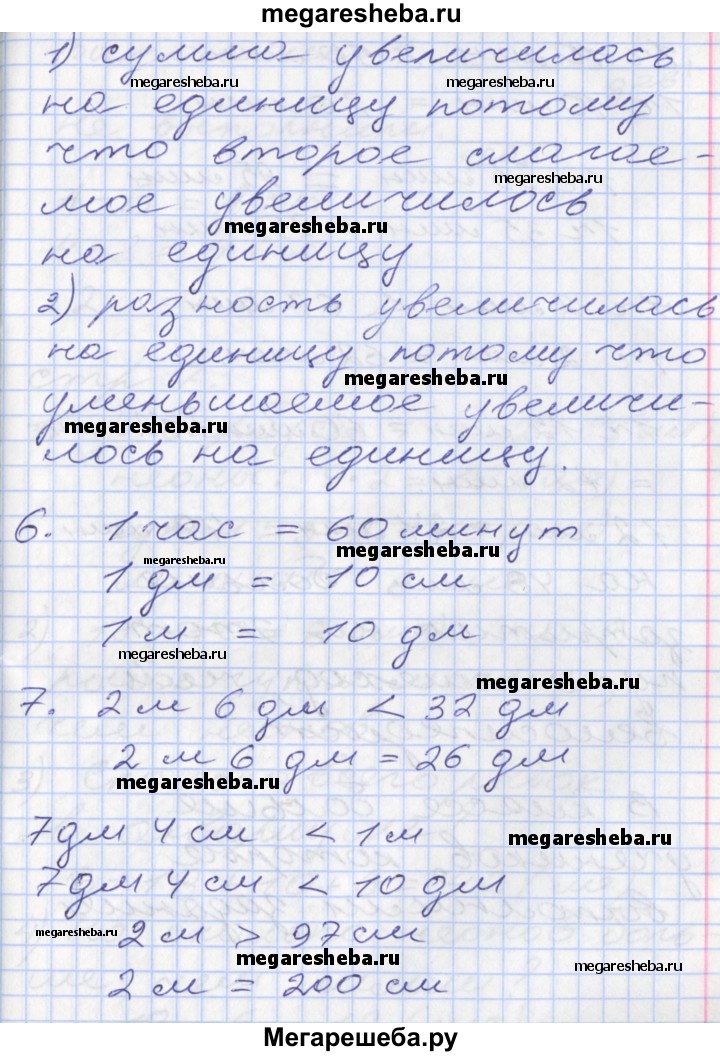 megaresheba.ru
1) сумма увеличилась
megaresheba.ru megaresheba.ru
на единицу потому
что второе слагае-
megaresheba.ru
мое увеличилось
megaresheba.ru
на единицу
2) разность увеличилась
на единицу потому что
megaresheba.ru
уменьшаемое увеличи-
megaresheba.ru
лось на единицу.
6. 1 час = 60 минут
megaresheba.ru megaresheba.ru
1 дм = 10 см
1 м = 10 дм
megaresheba.ru
megaresheba.ru
7. 2 м 6 дм < 32 дм
2 м 6 дм = 26 дм
megaresheba.ru
7 дм 4 см < 1 м
megaresheba.ru
7 дм 4 см < 10 дм
megaresheba.ru 2 м > 97 см
megaresheba.ru megaresheba.ru
2 м = 200 см
Мегарешеба.ру